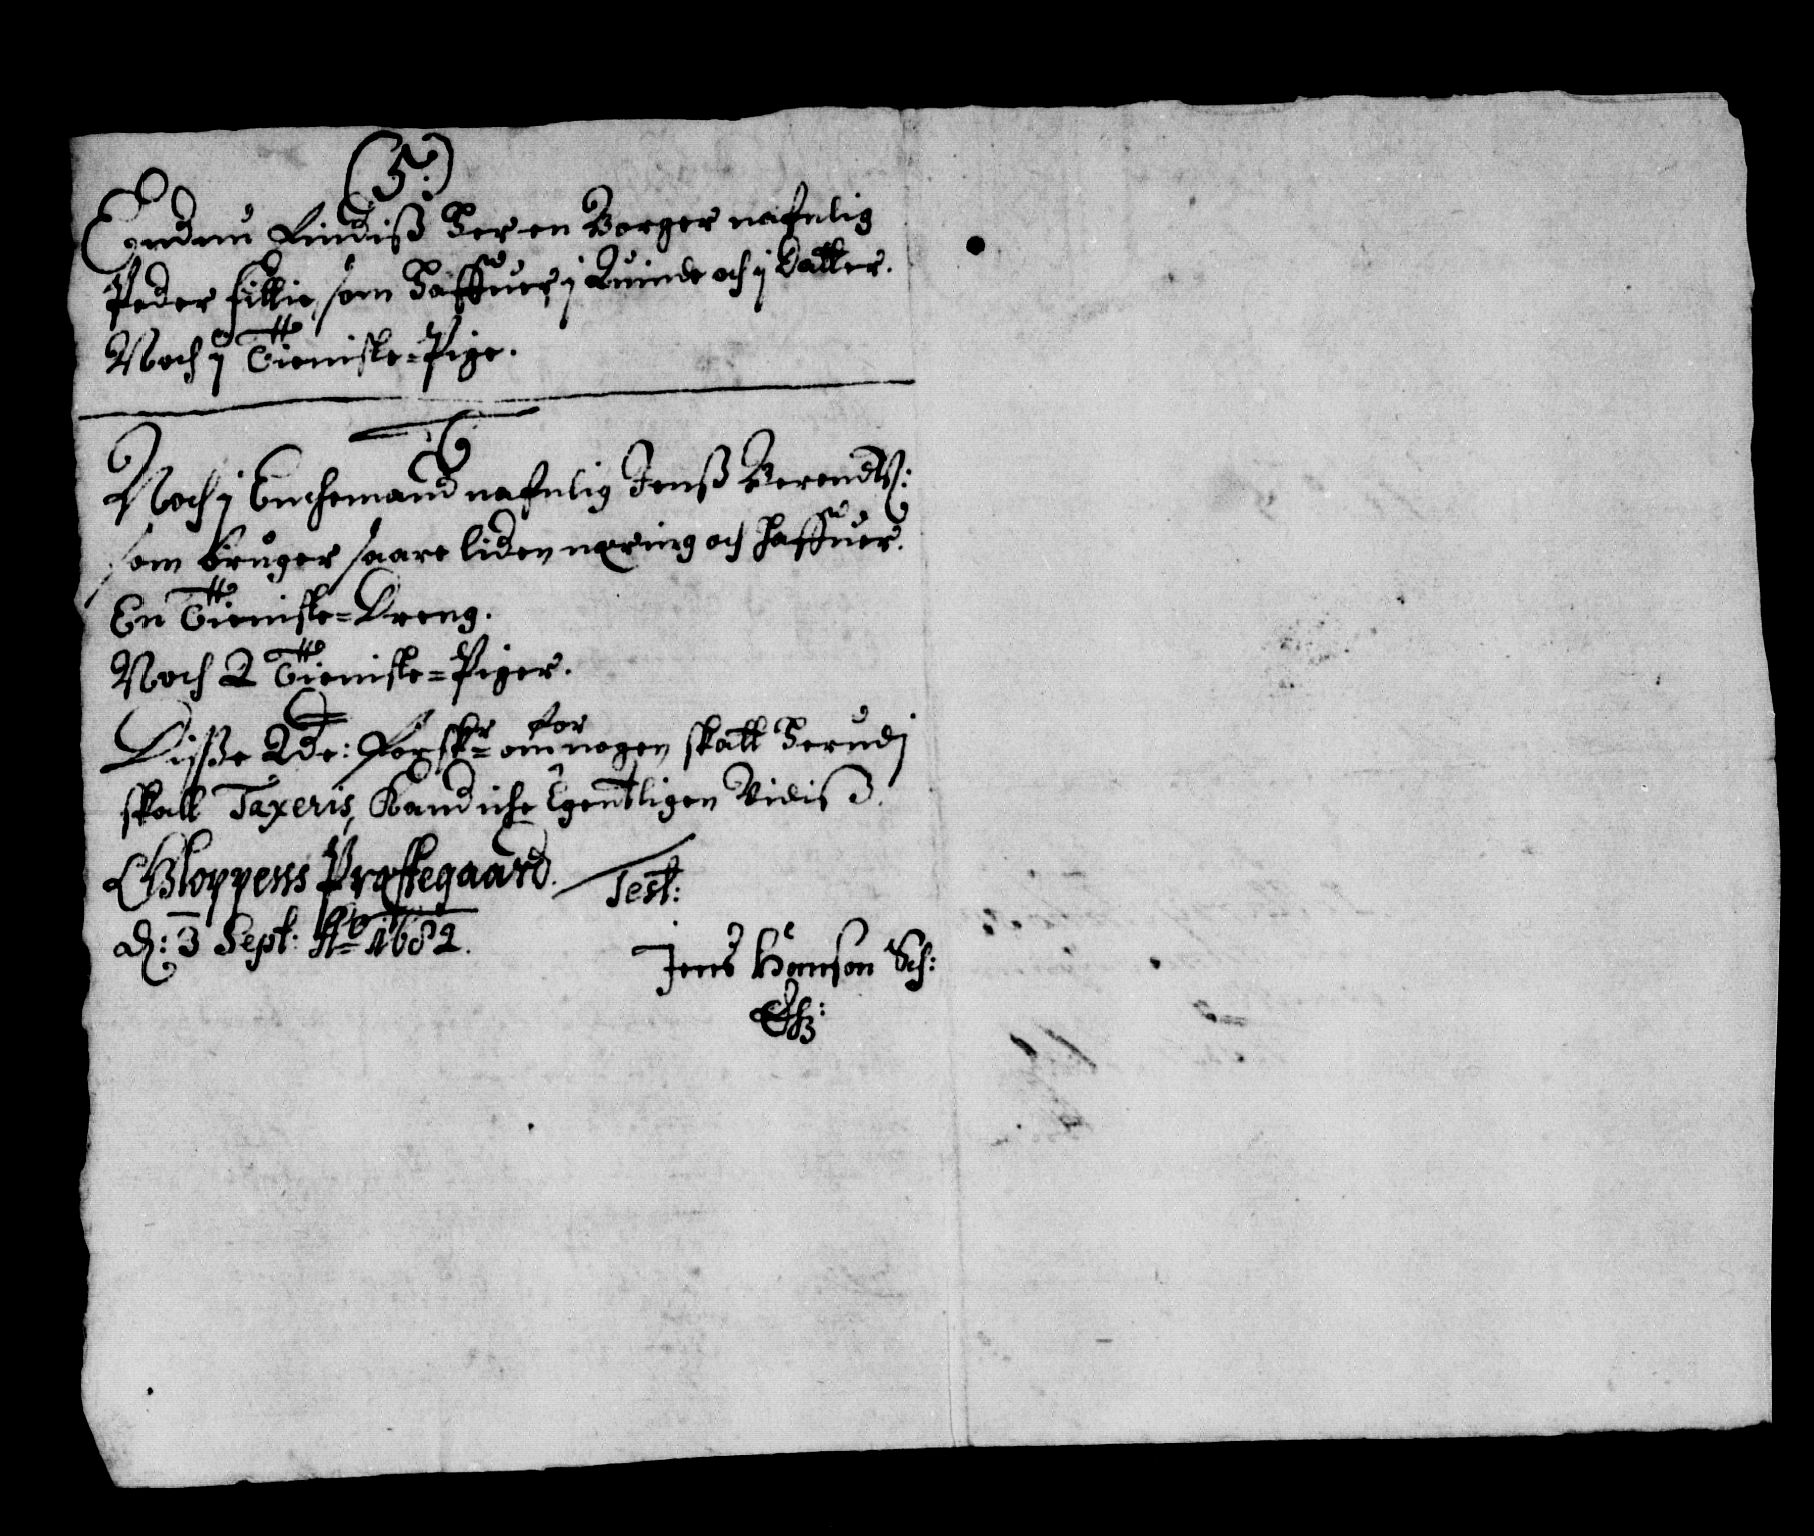 (5:)
Endnu findiß her en Borger nafnlig
Peder fillie, som haffuer j Quinde och j Datter.
Noch j Tieniste=Pige.
Noch j Enchemand nafnlig Jenß Berendts:
som bruger saare liden næring och haffuer.
En Tieniste=Dreng.
Noch 2 Tieniste=Piger.
Disse 2de: Forskr= om for nogen skatt herudj
skall Taxeris, Kand iche Egentligen Vidiß.
Gloppens Præstegaard.
d: 3 Sept: Ao= 1682.
Test:
Jens Hanson Sch: